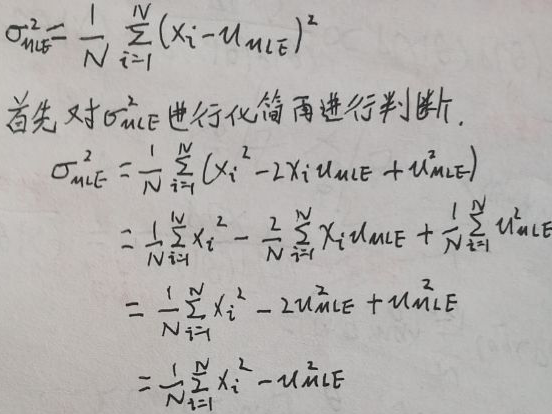 σ²_MLE = 1/N ∑_{i=1}^{N} (x_i - u_MLE)²
首先对σ²_MLE进行化简再进行判断.
σ²_MLE = 1/N ∑_{i=1}^{N} (x_i² - 2x_i u_MLE + u²_MLE)
= 1/N ∑_{i=1}^{N} x_i² - 2/N ∑_{i=1}^{N} x_i u_MLE + 1/N ∑_{i=1}^{N} u²_MLE
= 1/N ∑_{i=1}^{N} x_i² - 2u²_MLE + u²_MLE
= 1/N ∑_{i=1}^{N} x_i² - u²_MLE